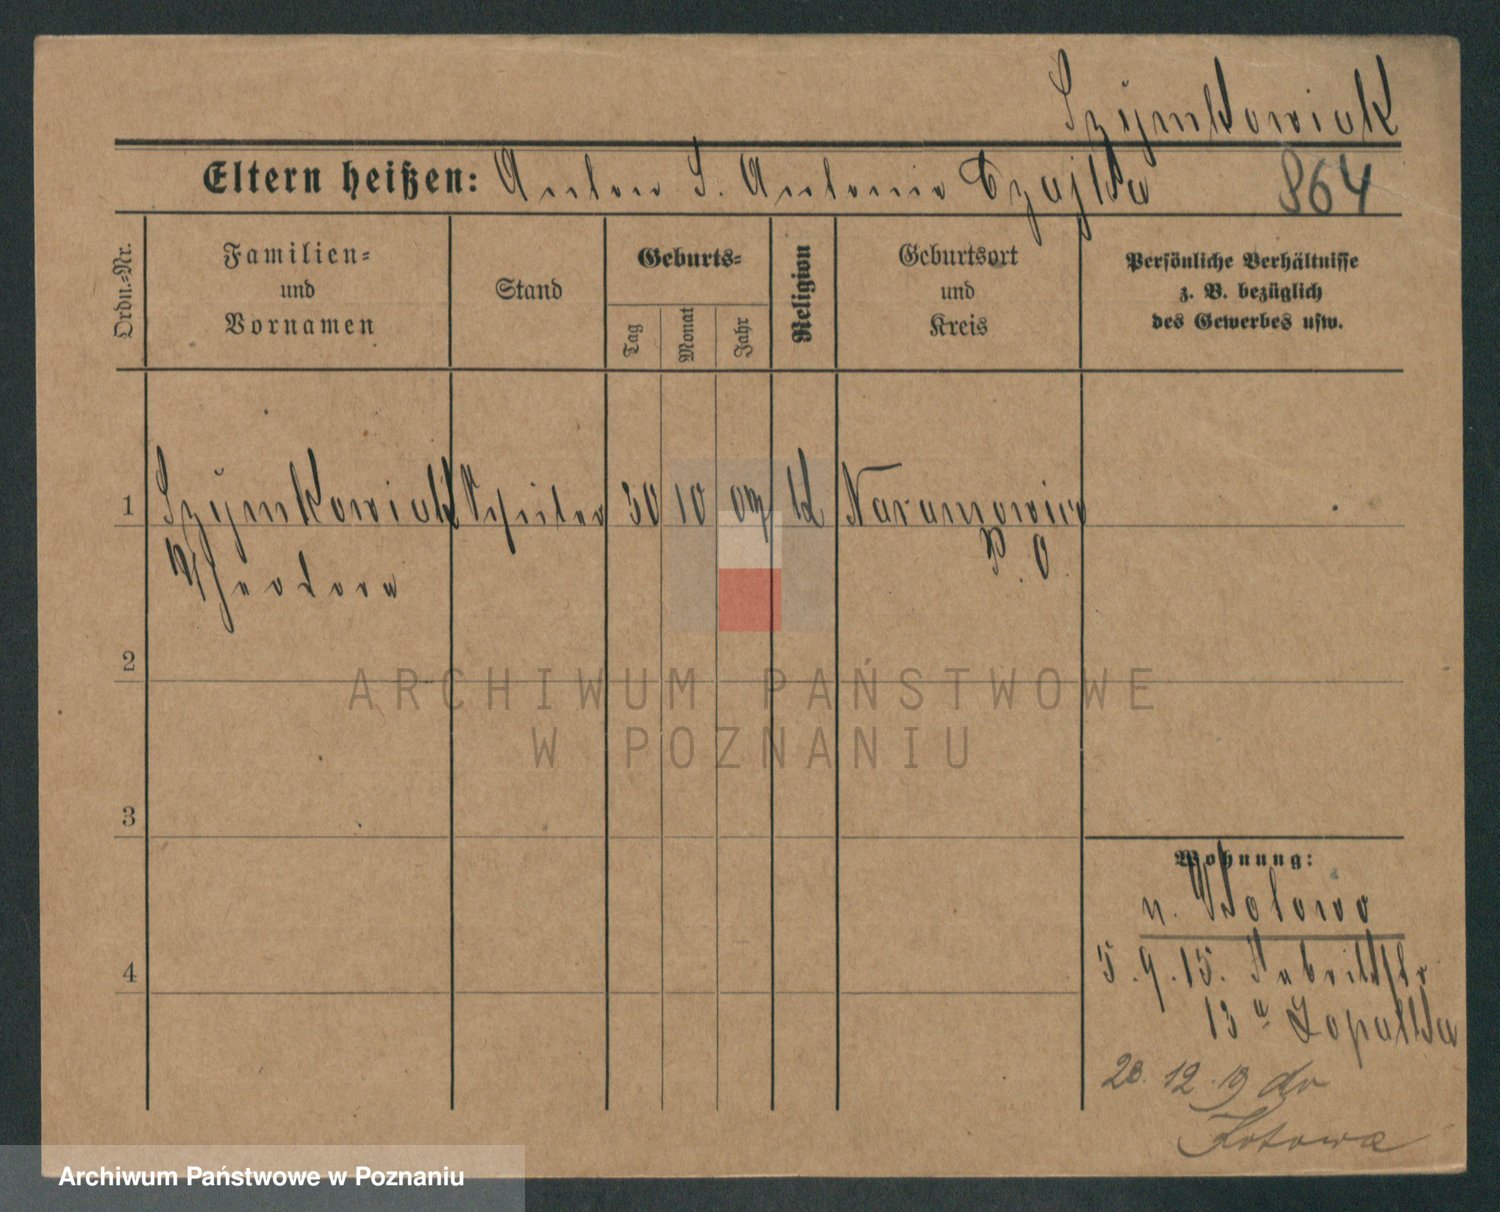 Szymkowiak
Eltern heißen: Anton S. Antonie Czajka 864
Ordn.-Nr.
Familien-
und
Vornamen
Stand
Geburts-
Tag
Monat
Jahr
Religion
Geburtsort
und
Kreis
Persönliche Verhältnisse
z. B. bezüglich
des Gewerbes usw.
1 Szymkowiak Schüler 30 10 K Naramowice
Theodor P. O.
2
3
4
Wohnung:
n.
5.9.15. Fabrikstr
13a Lopatka
28.12.19 do
Kotowa
ARCHIWUM PAŃSTWOWE
W POZNANIU
Archiwum Państwowe w Poznaniu